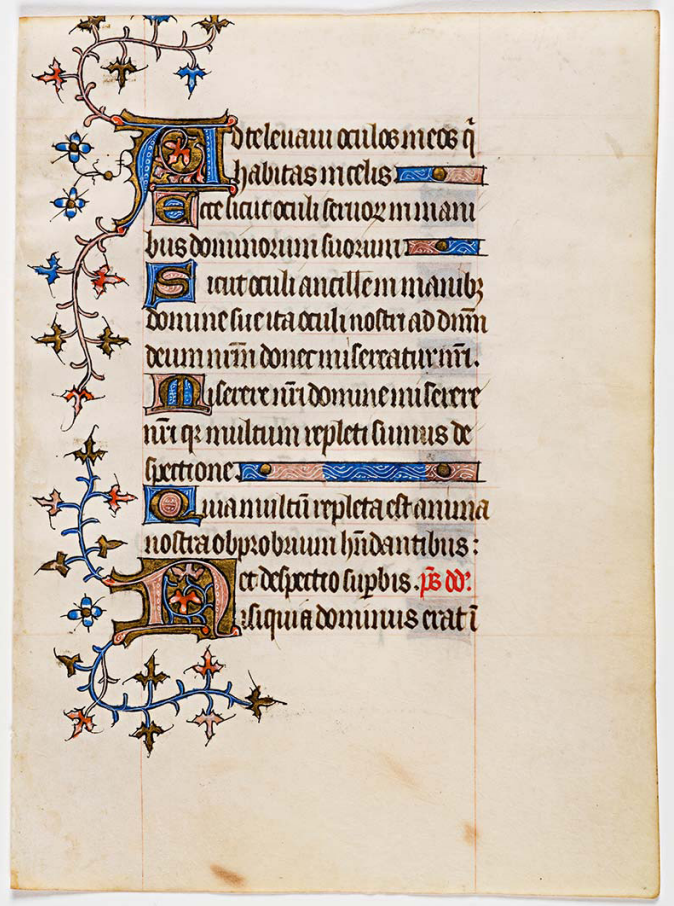 Ad te levavi oculos meos q̄
habitas in celis
Ecce sicut oculi servoꝝ in mani
bus dominorum suorum
Sicut oculi ancille in manibꝫ
domine sue ita oculi nostri ad dn̄m
deum nr̄m donec misereatur nr̄i.
Miserere nr̄i domine miserere
nr̄i qꝛ multum repleti sumus de
spectione
Quia multū repleta est anima
nostra obprobrium hn̄dantibus :
et despectio suꝑbis . p̄s dd̄.
Nisi quia dominus erat ī